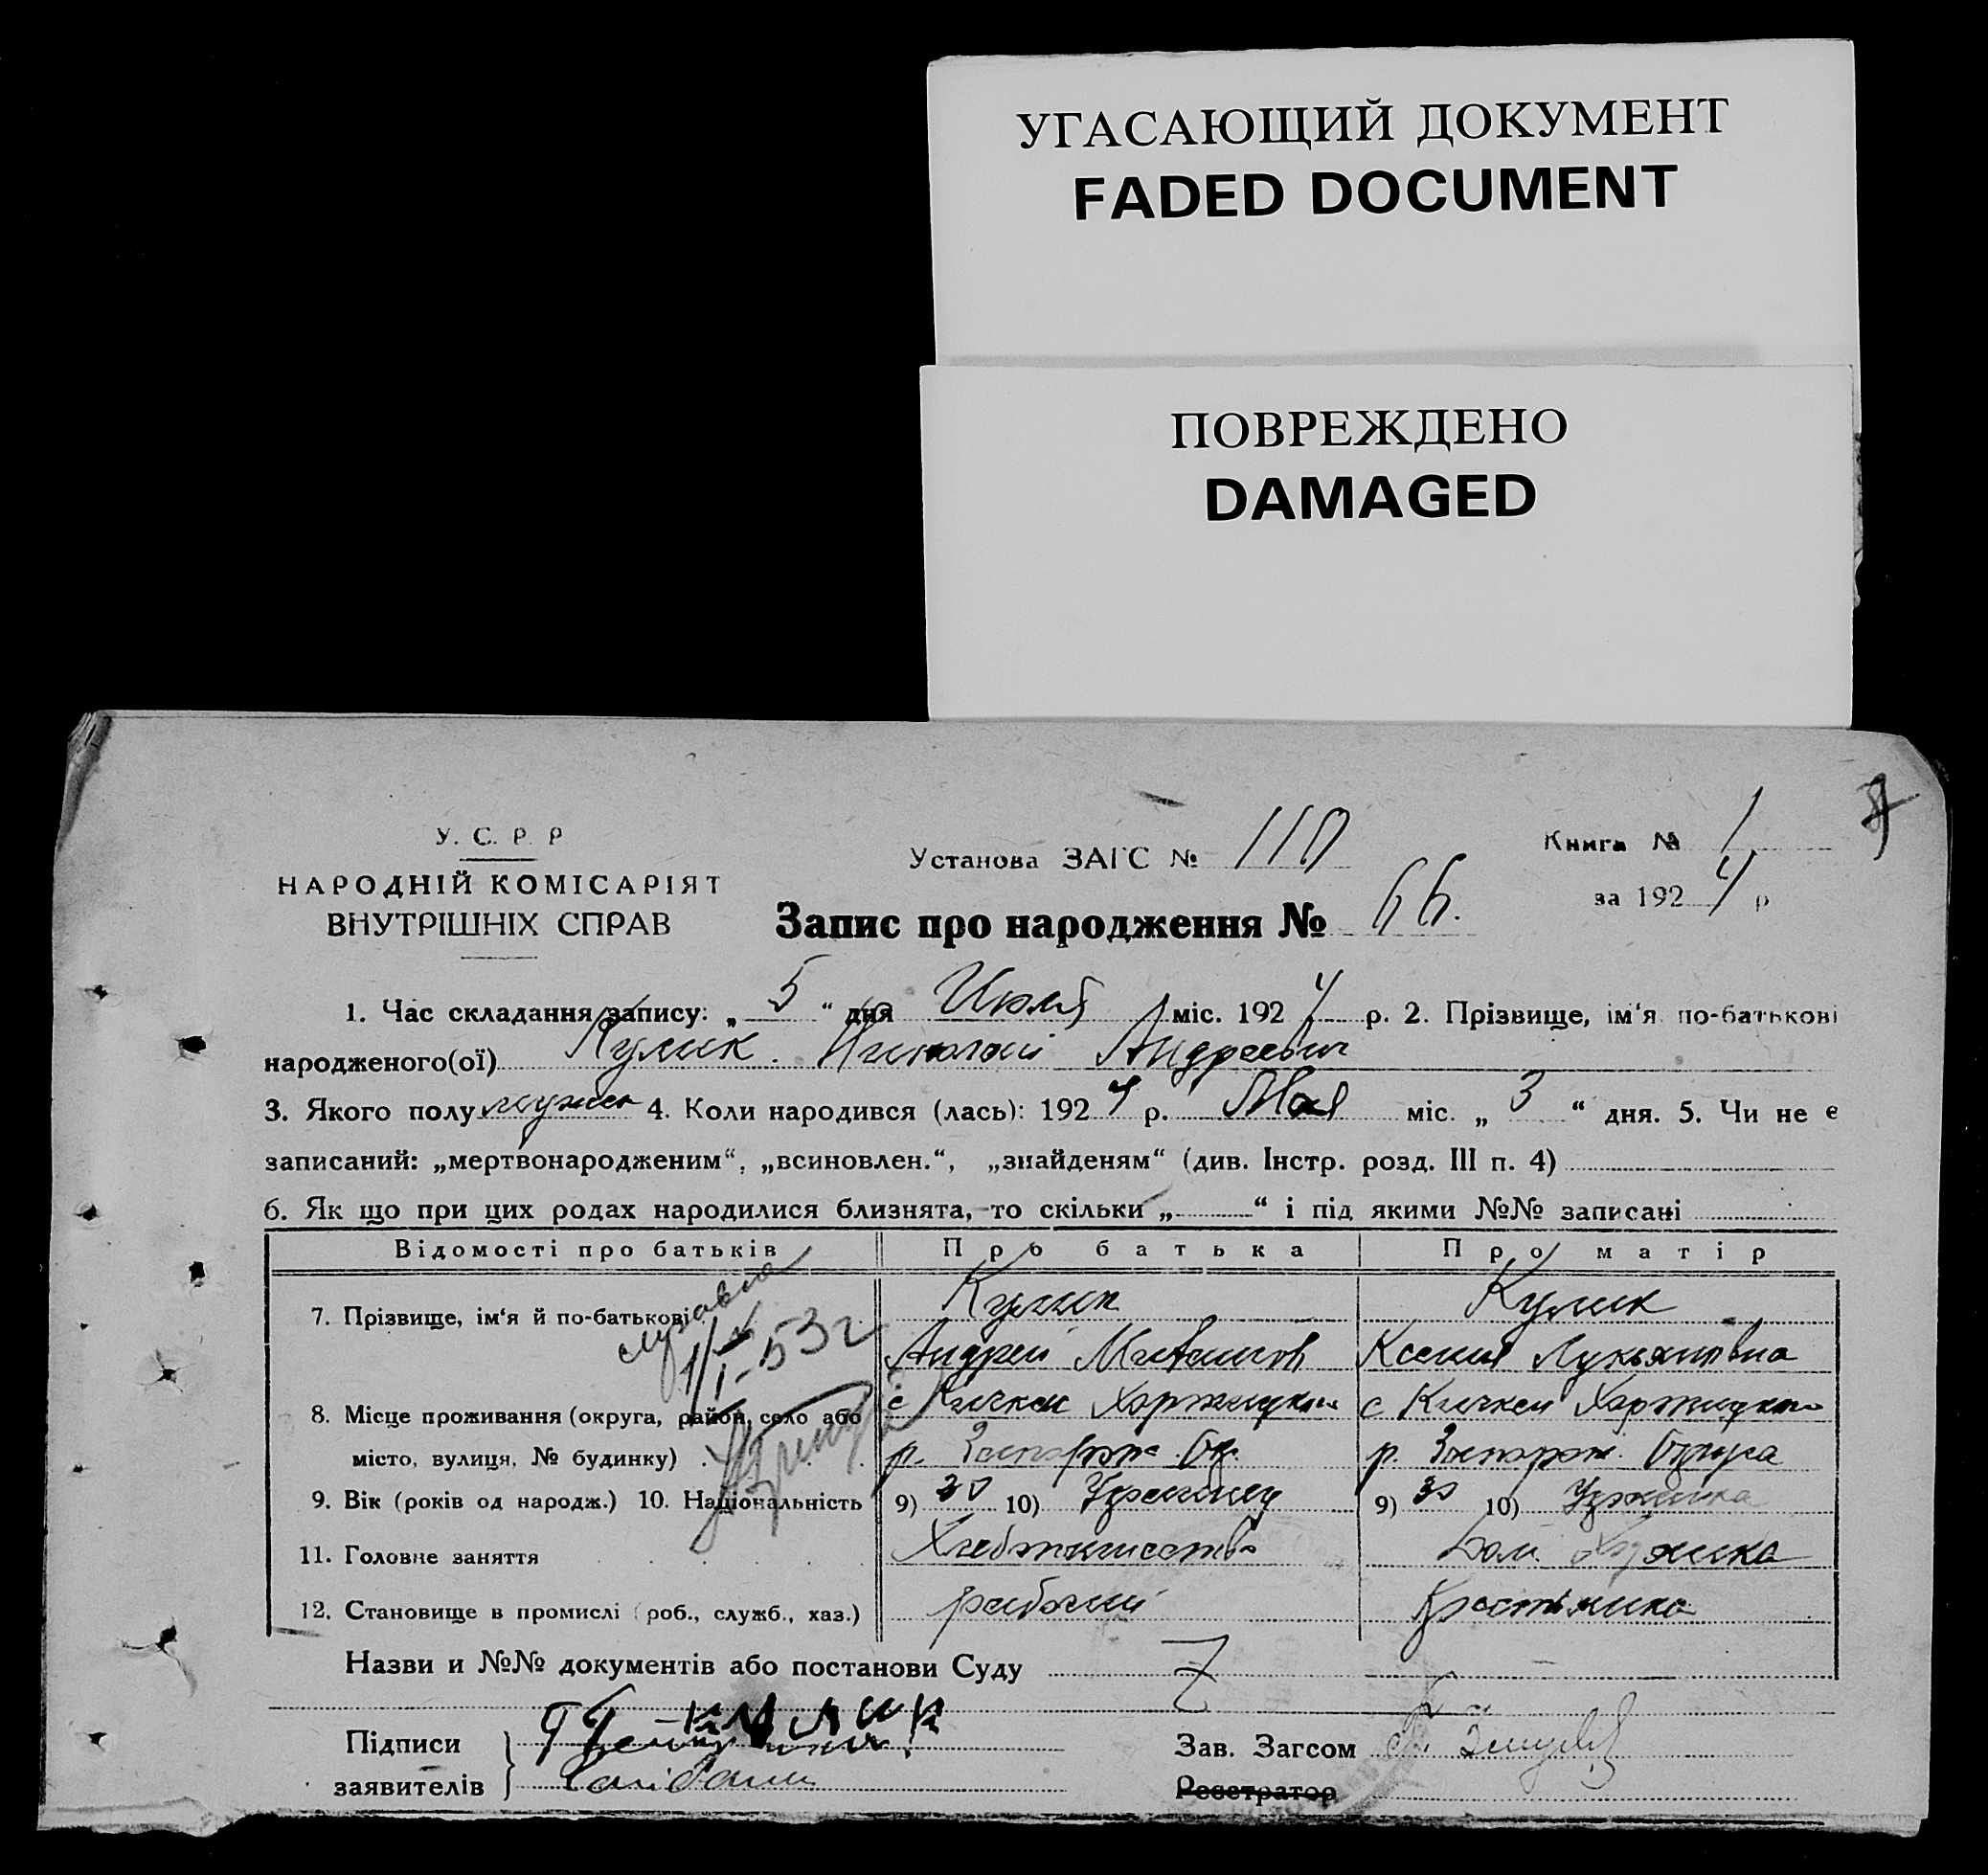 УГАСАЮЩИЙ ДОКУМЕНТ
FADED DOCUMENT
ПОВРЕЖДЕНО
DAMAGED
У. С. Р. Р
НАРОДНІЙ КОМІСАРІЯТ
ВНУТРІШНІХ СПРАВ
Установа ЗАГС № 110
Книга № 1
за 1924 р
Запис про народження № 66.
1. Час складання запису: „ 5 “ дня Июля міс. 1924 р. 2. Прізвище, ім‘я по-батькові
народженого(ої) Кулик Николай Андреевич
3. Якого полу мужск 4. Коли народився (лась): 1924 р. Мая міс. „ 3 “ дня. 5. Чи не є
записаний: „мертвонародженим“, „всиновлен.“, „знайденям“ (див. Інстр. розд. III п. 4)
6. Як що при цих родах народилися близнята, то скільки „ “ і під якими №№ записані
Відомості про батьків Про батька Про матір
7. Прізвище, ім‘я й по-батькові Кулик Кулик
Андрей Ксения Лукьяновна
8. Місце проживання (округа, район, село або с Кичкас с Кичкас
місто, вулиця, № будинку) р. Запорож. Ок. р. Запорож. Округа
9. Вік (років од народж.) 10. Національність 9) 30 10) Украинец 9) 30 10) Украинка
11. Головне заняття Хлебопашество Дом. Хозяйка
12. Становище в промислі (роб., служб., хаз.) рабочий Крестьянка
53 г
Назви и №№ документів або постанови Суду
Підписи Кулик
заявителів
Зав. Загсом
Реєстратор